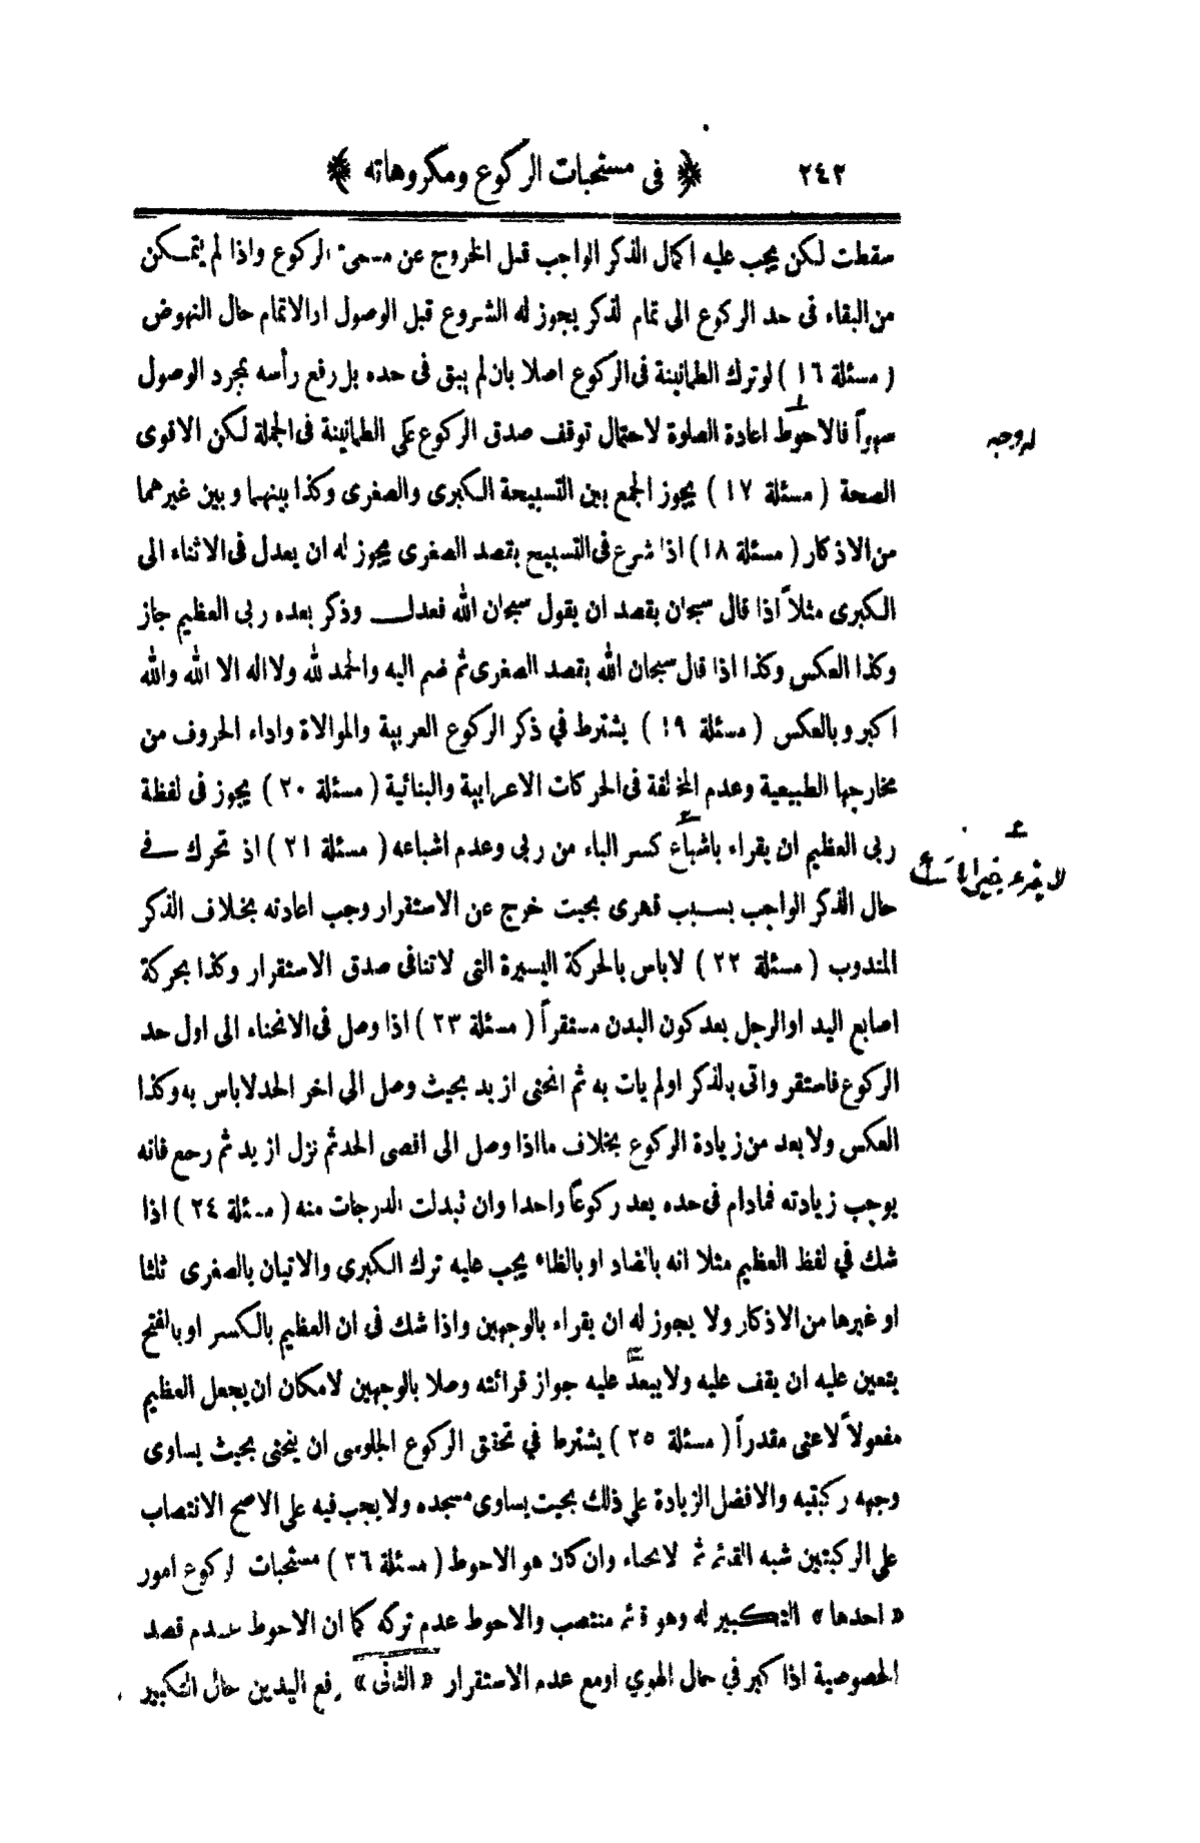 ٢٤٢ ﴿ فى مستحبات الركوع ومكروهاته ﴾
سقطت لكن يجب عليه اكمال الذكر الواجب قبل الخروج عن مسمى الركوع واذا لم يتمكن
من البقاء فى حد الركوع الى تمام الذكر يجوز له الشروع قبل الوصول اوالاتمام حال النهوض
( مسئلة ١٦ ) لو ترك الطمانينة فى الركوع اصلا بان لم يبق فى حده بل رفع رأسه بمجرد الوصول
سهواً فالاحوط اعادة الصلوة لاحتمال توقف صدق الركوع على الطمانينة فى الجملة لكن الاقوى
له وجه
الصحة ( مسئلة ١٧ ) يجوز الجمع بين التسبيحة الكبرى والصغرى وكذا بينهما وبين غيرهما
من الاذكار ( مسئلة ١٨ ) اذا شرع فى التسبيح بقصد الصغرى يجوز له ان يعدل فى الاثناء الى
الكبرى مثلاً اذا قال سبحان بقصد ان يقول سبحان الله فعدل وذكر بعده ربى العظيم جاز
وكذا العكس وكذا اذا قال سبحان الله بقصد الصغرى ثم ضم اليه والحمد لله ولا اله الا الله والله
اكبر وبالعكس ( مسئلة ١٩ ) يشترط في ذكر الركوع العربية والموالاة واداء الحروف من
مخارجها الطبيعية وعدم المخالفة فى الحركات الاعرابية والبنائية ( مسئلة ٢٠ ) يجوز فى لفظة
ربى العظيم ان يقراء باشباع كسر الباء من ربى وعدم اشباعه ( مسئلة ٢١ ) اذ تحرك فى
حال الذكر الواجب بسبب قهرى بحيث خرج عن الاستقرار وجب اعادته بخلاف الذكر
المندوب ( مسئلة ٢٢ ) لاباس بالحركة اليسيرة التى لاتنافى صدق الاستقرار وكذا بحركة
اصابع اليد اوالرجل بعد كون البدن مستقراً ( مسئلة ٢٣ ) اذا وصل فى الانحناء الى اول حد
الركوع فاستقر واتى بالذكر اولم يات به ثم انحنى ازيد بحيث وصل الى اخر الحد لاباس به وكذا
العكس ولا يعد من زيادة الركوع بخلاف مااذا وصل الى اقصى الحد ثم نزل ازيد ثم رجع فانه
يوجب زيادته فمادام فى حده يعد ركوعاً واحدا وان تبدلت الدرجات منه ( مسئلة ٢٤ ) اذا
شك في لفظ العظيم مثلا انه بالضاد او بالظاء يجب عليه ترك الكبرى والاتيان بالصغرى ثلثا
او غيرها من الاذكار ولا يجوز له ان يقراء بالوجهين واذا شك فى ان العظيم بالكسر او بالفتح
يتعين عليه ان يقف عليه ولا يبعد عليه جواز قرائته وصلا بالوجهين لامكان ان يجعل العظيم
مفعولاً لاعنى مقدراً ( مسئلة ٢٥ ) يشترط في تحقق الركوع الجلوسى ان ينحنى بحيث يساوى
وجهه ركبتيه والافضل الزيادة على ذلك بحيث يساوى مسجده ولا يجب فيه على الاصح الانتصاب
على الركبتين شبه القائم ثم الانحناء وان كان هو الاحوط ( مسئلة ٢٦ ) مستحبات الركوع امور
« احدها » التكبير له وهو قائم منتصب والاحوط عدم تركه كما ان الاحوط عدم قصد
الخصوصية اذا كبر في حال الهوي اومع عدم الاستقرار « الثانى » رفع اليدين حال التكبير